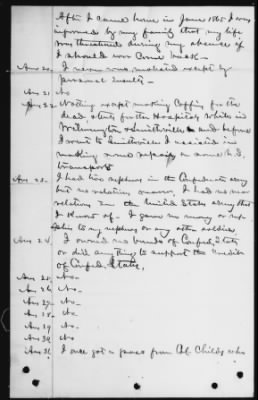 After I came home in June 1865 I was
informed by my family that my life
was threatened during my absence if
I should ever come back.
Ans 20. I never was molested except by
personal insults.
Ans 21 No
Ans 22 Nothing except making Coffins for the
dead, & tents for the Hospital, whilst in
Wilmington & Smithville & and before
I went to Smithville I assisted in
making some repairs on some U.S.
transports
Ans 23. I had two nephews in the Confederate army
but no relation nearer, I had no near
relations in the United States army that
I know of. I gave no money or sup-
plies to my nephews or any other soldier.
Ans 24. I owned no bonds of Confed. States
or did anything to support the Credits
of Confed. States.
Ans 25. No.
Ans 26. No.
Ans 27. No.
Ans 28. No.
Ans 29. No.
Ans 30. No.
Ans 31 I once got a pass from Col. Childs who